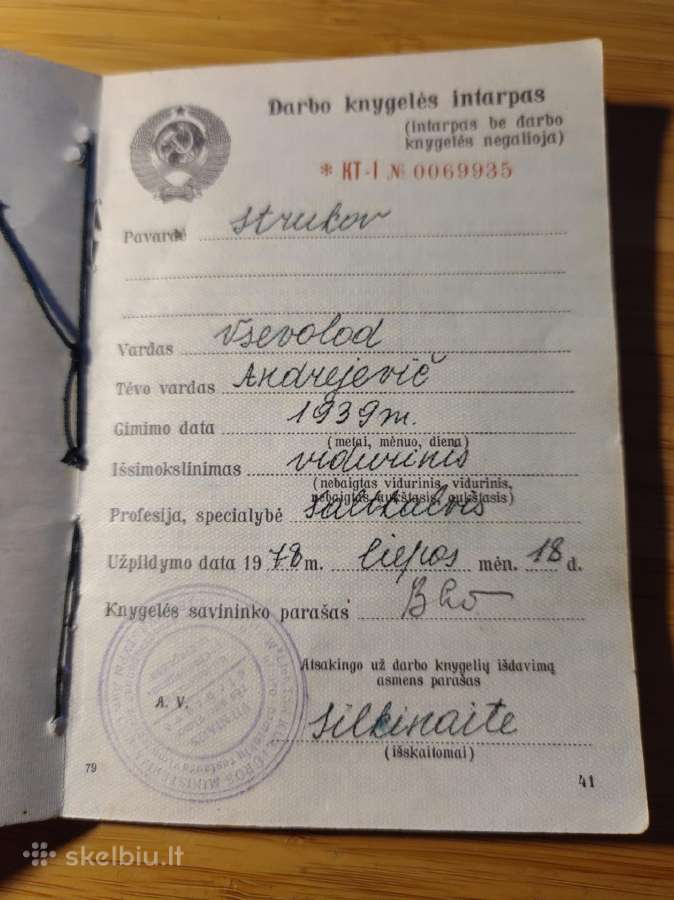 Darbo knygelės intarpas
(intarpas be darbo
knygelės negalioja)
* KT-I № 0069935
Pavardė Strukov
Vardas Vsevolod
Tėvo vardas Andrejevič
Gimimo data 1939 m.
(metai, mėnuo, diena)
Išsimokslinimas vidurinis
(nebaigtas vidurinis, vidurinis,
nebaigtas aukštasis, aukštasis)
Profesija, specialybė šaltkalvis
Užpildymo data 1978 m. liepos mėn. 18 d.
Knygelės savininko parašas
Atsakingo už darbo knygelių išdavimą
asmens parašas
A. V.
Silkinaite
(išskaitomai)
79
41
skelbiu.lt